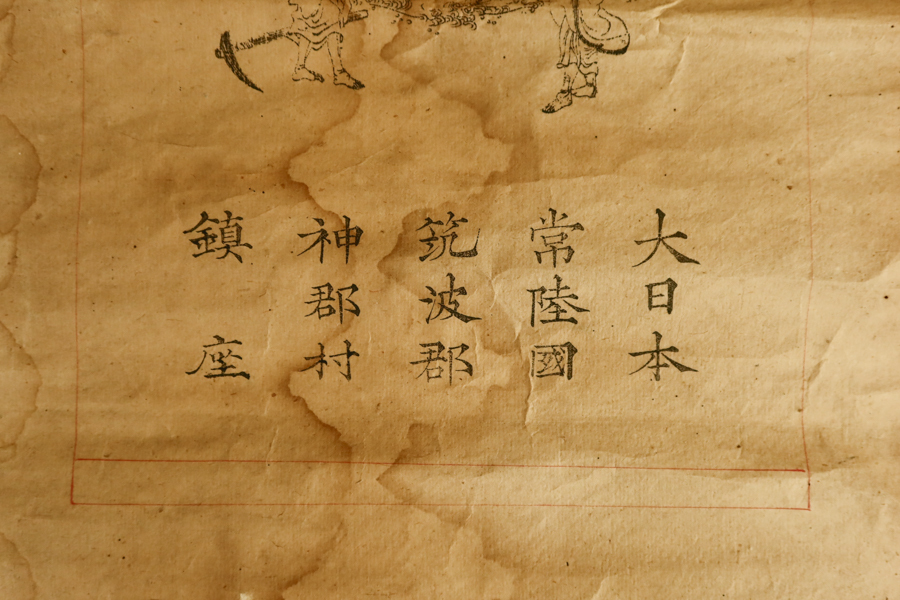 大日本
常陸國
筑波郡
神郡村
鎮座